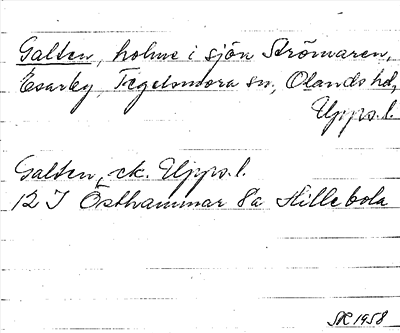 Galten, holme i sjön Strömaren,
Esarby, Tegelsmora sn, Olands hd,
Upps.l.
Galten, ek. Upps.l.
12 I Östhammar 8a Hillebola
SR 1958